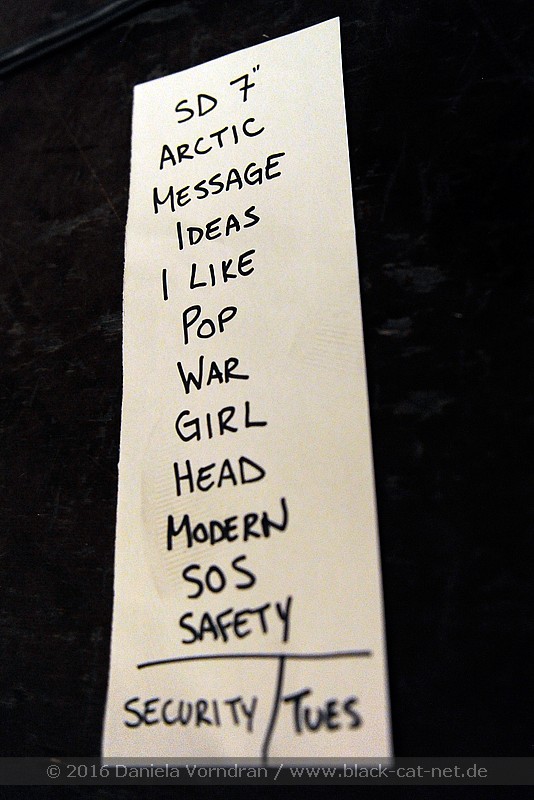 SD 7"
ARCTIC
MESSAGE
IDEAS
I LIKE
POP
WAR
GIRL
HEAD
MODERN
SOS
SAFETY
SECURITY / TUES
© 2016 Daniela Vorndran / www.black-cat-net.de